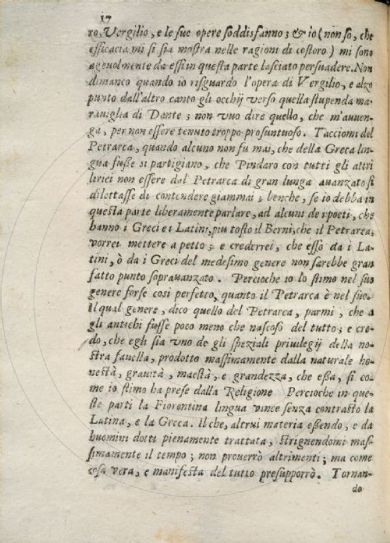 17
ro, Vergilio, e le sue opere soddisfanno; & io (non so, che
efficacia mi si sia mostra nelle ragioni di costoro) mi sono
agevolmente da essi in questa parte lasciato persuadere. Non
dimanco quando io risguardo l'opera di Vergilio, e alzo
punto dall'altro canto gli occhij verso quella stupenda ma-
raviglia di Dante; non vuo dire quello, che m'avuen-
ga, per non essere tenuto troppo prosuntuoso. Tacciomi del
Petrarca, quando alcuno non fu mai, che della Greca lin
gua fusse si partigiano, che Pindaro con tutti gli altri
lirici non essere dal Petrarca di gran lunga avanzato si
dilettasse di contendere giammai; benche, se io debba in
questa parte liberamente parlare, ad alcuni de i poeti, che
hanno i Greci e i Latini, piu tosto il Berni, che il Petrarca,
vorrei mettere a petto; e crederrei, che esso da i La-
tini, ò da i Greci del medesimo genere non sarebbe gran
fatto punto sopravanzato. Percioche io lo stimo nel suo
genere forse così perfetto, quanto il Petrarca è nel suo.
il qual genere, dico quello del Petrarca, parmi, che a
gli antichi fusse poco meno che nascoso del tutto; e cre-
do, che egli sia uno de gli speziali privilegij della no
stra favella, prodotto massimamente dalla naturale ho
nestà, gravità, maestà, e grandezza, che essa, si co
me io stimo ha prese dalla Religione Percioche in que
ste parti la Fiorentina lingua vince senza contrasto la
Latina, e la Greca. Il che, altrui materia essendo, e da
huomini dotti pienamente trattata, strignendomi mas-
simamente il tempo; non proverrò altrimenti; ma come
cosa vera, e manifesta del tutto presupporrò. Tornan-
do